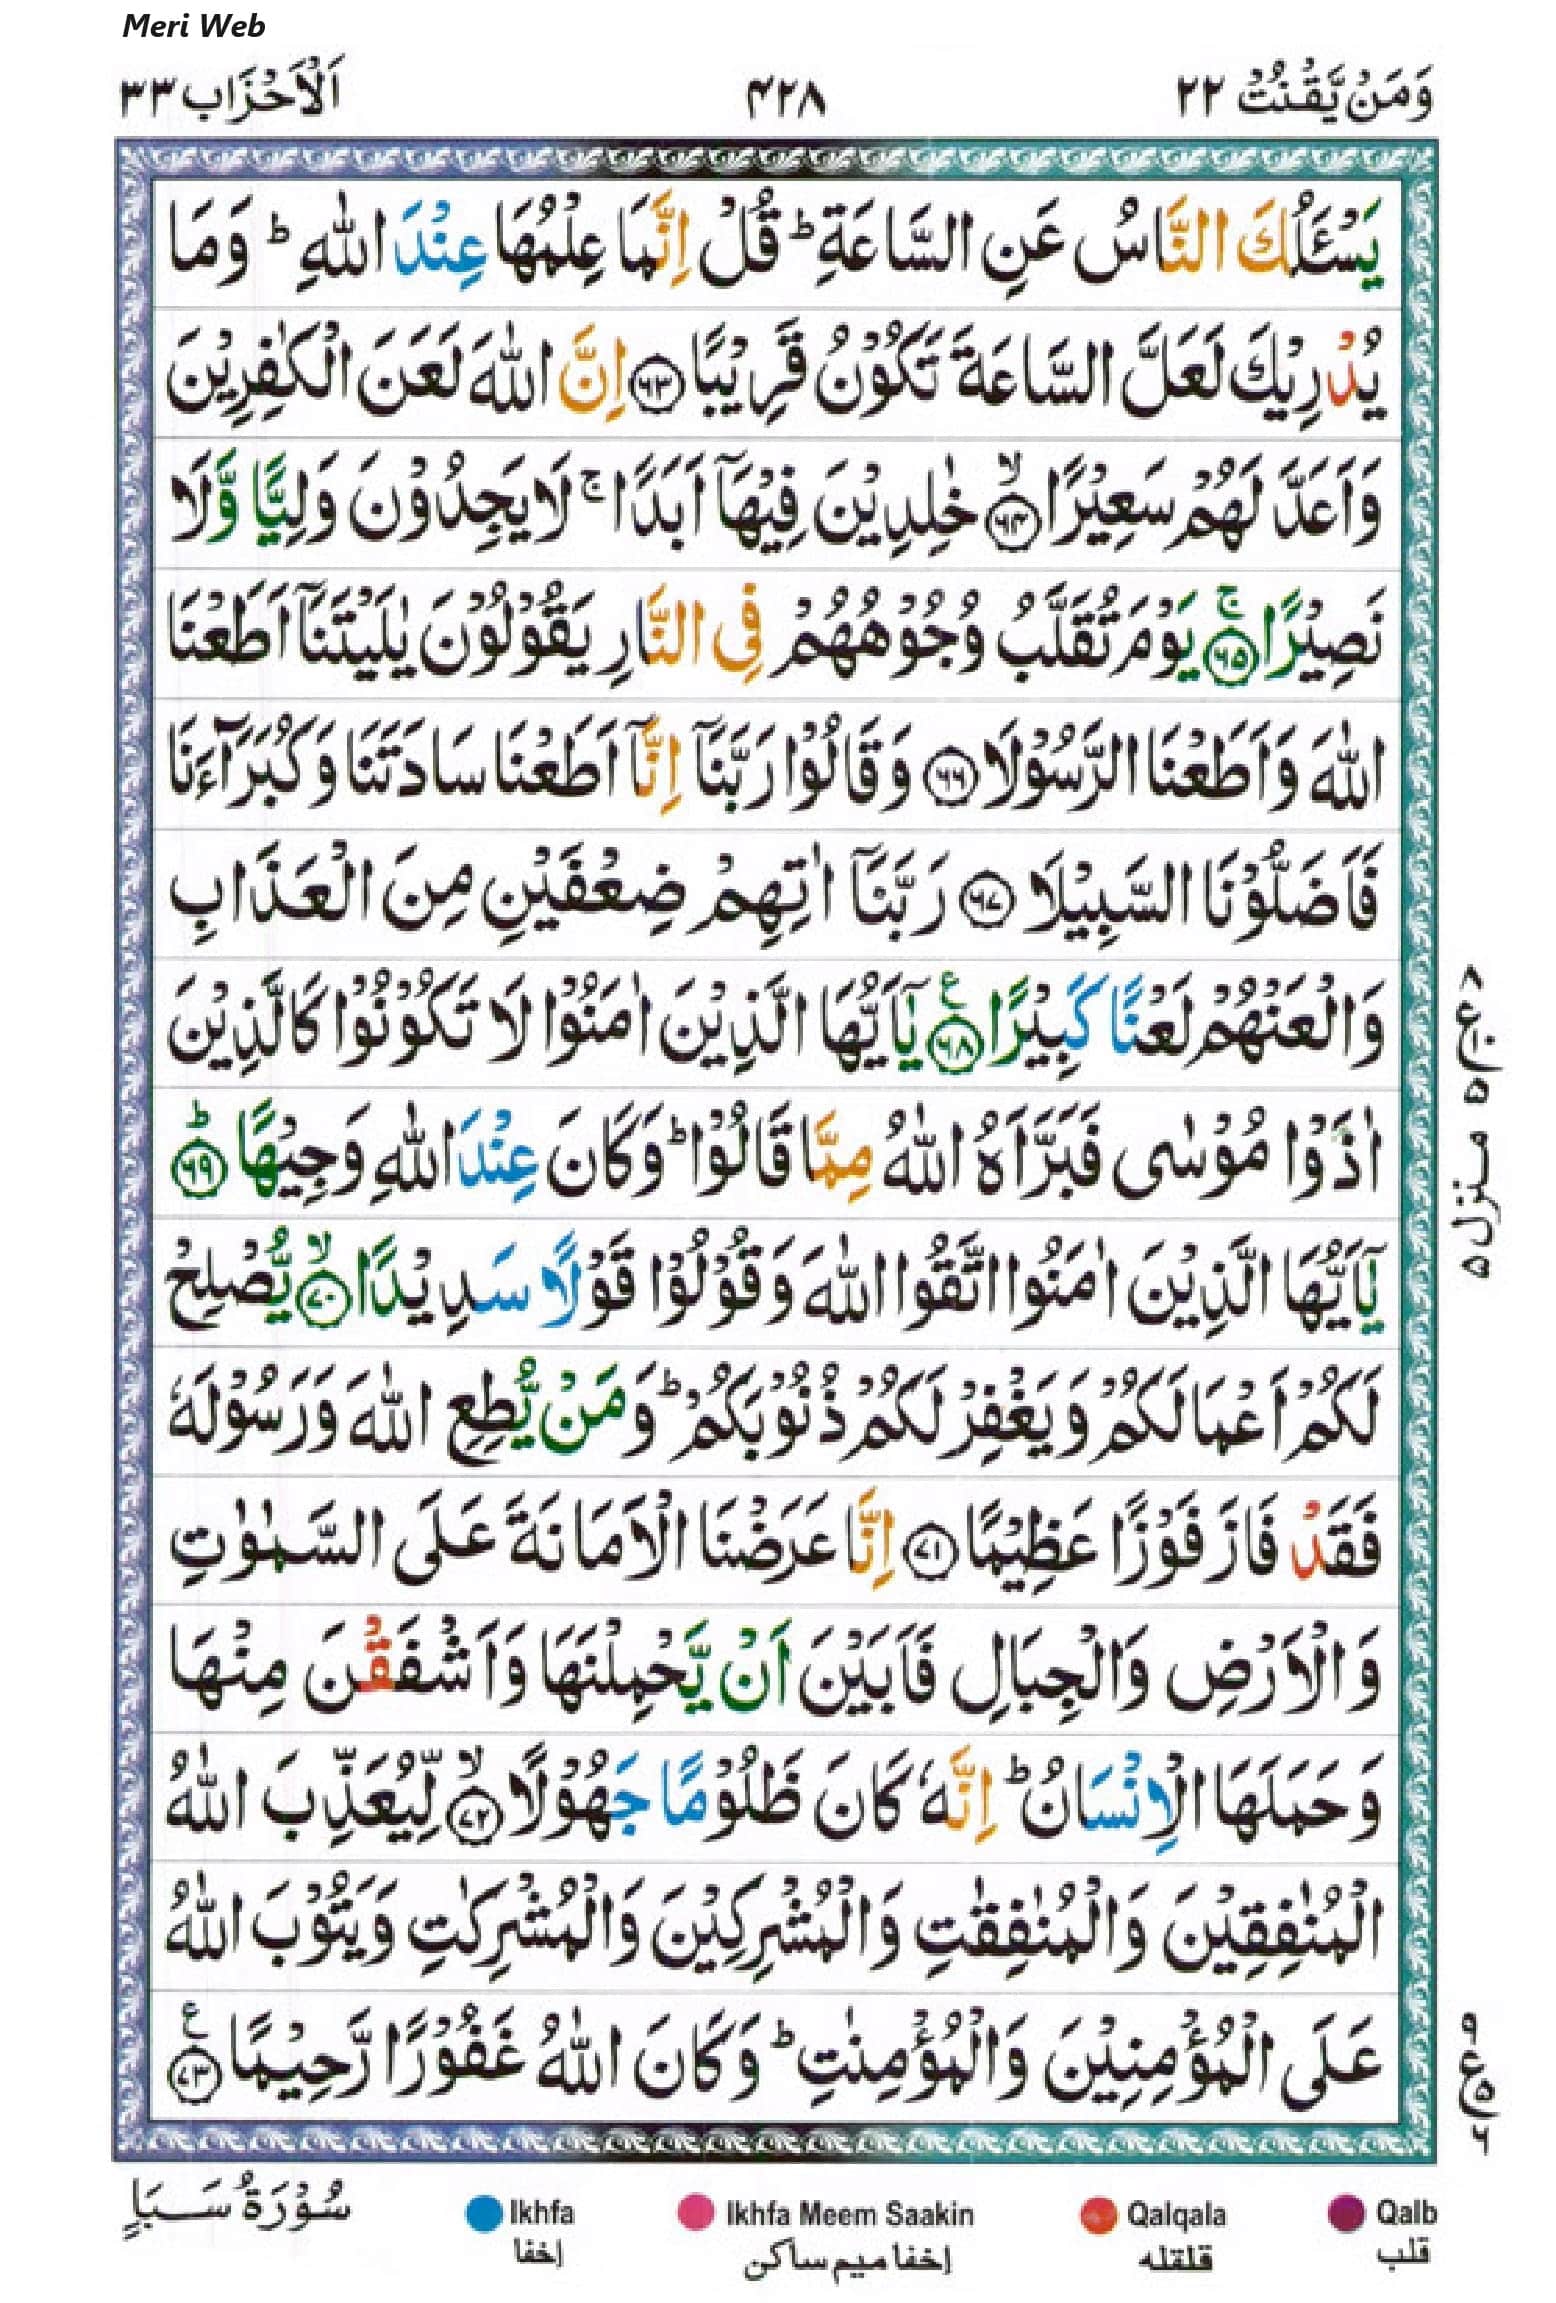 Meri Web
وَمَنْ يَّقْنُتْ ٢٢
٤٢٨
اَلْاَحْزَاب ٣٣
يَسْـَٔلُكَ النَّاسُ عَنِ السَّاعَةِ ؕ قُلْ اِنَّمَا عِلْمُهَا عِنْدَ اللّٰهِ ؕ وَمَا
يُدْرِيْكَ لَعَلَّ السَّاعَةَ تَكُوْنُ قَرِيْبًا ﴿۶۳﴾ اِنَّ اللّٰهَ لَعَنَ الْكٰفِرِيْنَ
وَاَعَدَّ لَهُمْ سَعِيْرًا ﴿۶۴﴾ۙ خٰلِدِيْنَ فِيْهَاۤ اَبَدًا ۚ لَا يَجِدُوْنَ وَلِيًّا وَّلَا
نَصِيْرًا ﴿۶۵﴾ۚ يَوْمَ تُقَلَّبُ وُجُوْهُهُمْ فِى النَّارِ يَقُوْلُوْنَ يٰلَيْتَنَاۤ اَطَعْنَا
اللّٰهَ وَاَطَعْنَا الرَّسُوْلَا ﴿۶۶﴾ وَقَالُوْا رَبَّنَاۤ اِنَّاۤ اَطَعْنَا سَادَتَنَا وَكُبَرَآءَنَا
فَاَضَلُّوْنَا السَّبِيْلَا ﴿۶۷﴾ رَبَّنَاۤ اٰتِهِمْ ضِعْفَيْنِ مِنَ الْعَذَابِ
وَالْعَنْهُمْ لَعْنًا كَبِيْرًا ﴿۶۸﴾ع يٰۤاَيُّهَا الَّذِيْنَ اٰمَنُوْا لَا تَكُوْنُوْا كَالَّذِيْنَ
اٰذَوْا مُوْسٰى فَبَرَّاَهُ اللّٰهُ مِمَّا قَالُوْا ؕ وَكَانَ عِنْدَ اللّٰهِ وَجِيْهًا ﴿۶۹﴾ؕ
يٰۤاَيُّهَا الَّذِيْنَ اٰمَنُوا اتَّقُوا اللّٰهَ وَقُوْلُوْا قَوْلًا سَدِيْدًا ﴿۷۰﴾ۙ يُّصْلِحْ
لَكُمْ اَعْمَالَكُمْ وَيَغْفِرْ لَكُمْ ذُنُوْبَكُمْ ؕ وَمَنْ يُّطِعِ اللّٰهَ وَرَسُوْلَهٗ
فَقَدْ فَازَ فَوْزًا عَظِيْمًا ﴿۷۱﴾ اِنَّا عَرَضْنَا الْاَمَانَةَ عَلَى السَّمٰوٰتِ
وَالْاَرْضِ وَالْجِبَالِ فَاَبَيْنَ اَنْ يَّحْمِلْنَهَا وَاَشْفَقْنَ مِنْهَا
وَحَمَلَهَا الْاِنْسَانُ ؕ اِنَّهٗ كَانَ ظَلُوْمًا جَهُوْلًا ﴿۷۲﴾ۙ لِّيُعَذِّبَ اللّٰهُ
الْمُنٰفِقِيْنَ وَالْمُنٰفِقٰتِ وَالْمُشْرِكِيْنَ وَالْمُشْرِكٰتِ وَيَتُوْبَ اللّٰهُ
عَلَى الْمُؤْمِنِيْنَ وَالْمُؤْمِنٰتِ ؕ وَكَانَ اللّٰهُ غَفُوْرًا رَّحِيْمًا ﴿۷۳﴾ع
منزل ۵
Qalb
قلب
Qalqala
قلقله
Ikhfa Meem Saakin
إخفا ميم ساكن
Ikhfa
إخفا
سُوْرَةُ سَبَاٍ